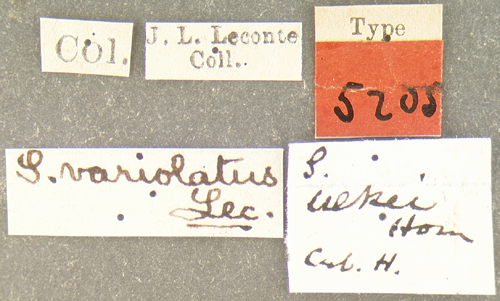 Col.
J. L. Leconte
Coll.
Type
5205
S. variolatus
Lec.
S.
ulkei
Horn
H.